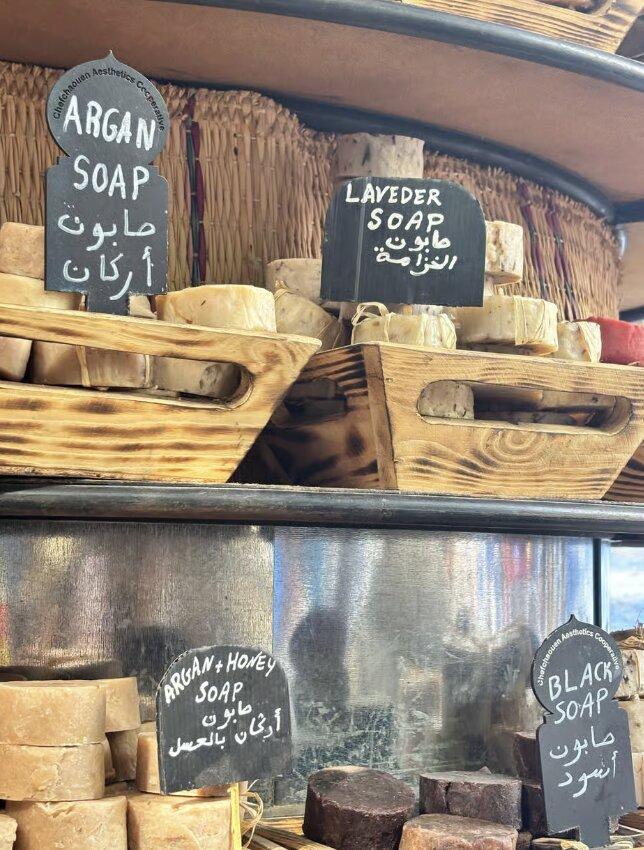 Chefchaouen Aesthetics Cooperative
ARGAN
SOAP
صابون
أركان
LAVEDER
SOAP
صابون
الخزامة
ARGAN + HONEY
SOAP
صابون
أركان بالعسل
Chefchaouen Aesthetics Cooperative
BLACK
SOAP
صابون
أسود